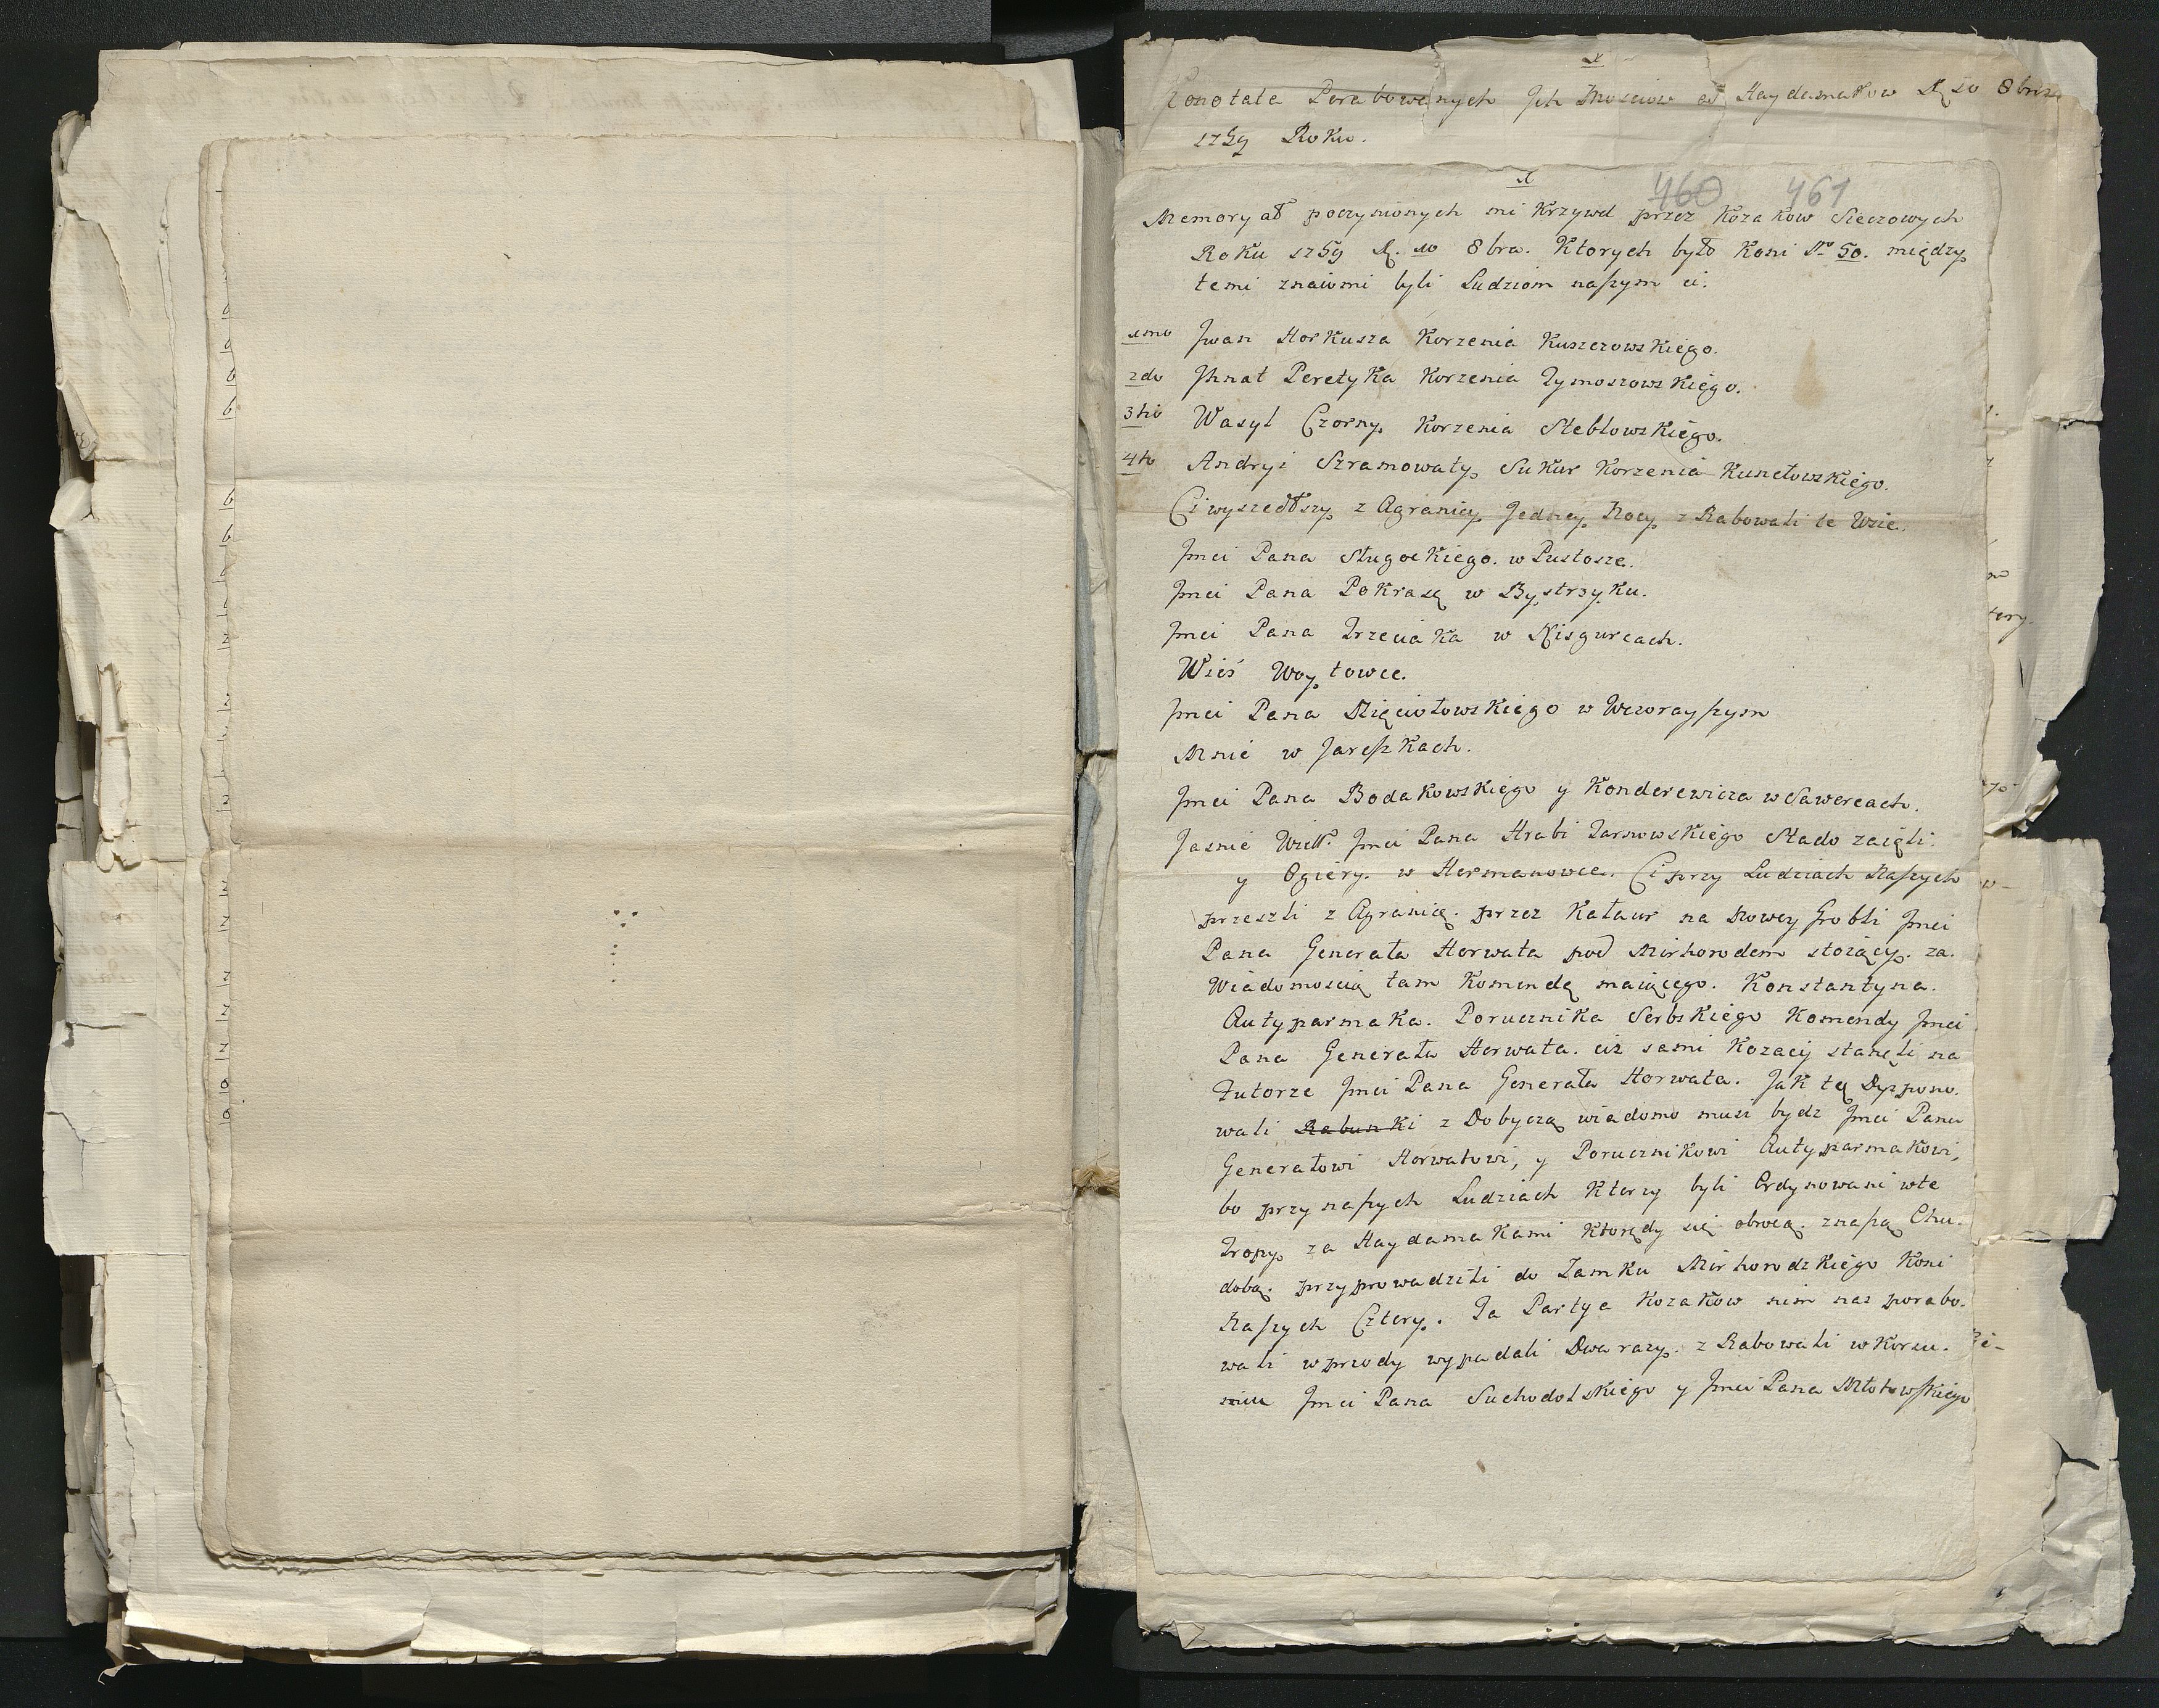 A
Konotata Porabowanych Jch Mosciow od Haydamakow D. 10 8bris
1759 Roku.
460 461
A
Memoryał poczynionych mi Krzywd przez Kozakow Sieczowych
Roku 1759 D. 10 8bra. Ktorych było Koni No 50. między
temi znaiomi byli Ludziom naszym ci.
1mo Jwan Horkusza Korzenia Kuszczowskiego.
2do Jhnat Peretyka Korzenia Tymoszowskiego.
3tio Wasyl Czorny Korzenia Steblowskiego.
4to Andryi Szramowaty Sukur Korzenia Kunełowskiego.
Ci wyszedłszy z Agranicy Jedney Nocy z Rabowali te Wsie.
Jmci Pana Sługockiego. w Pustosze.
Jmci Pana Pokrasę w Bystrzyku.
Jmci Pana Trzeciaka w Nisgurcach.
Wieś Woytowce.
Jmci Pana Dzięciołowskiego w Wczorayszym
Mnie w Jareszkach.
Jmci Pana Bodakowskiego y Konderewicza w Sawercach.
Jasnie Wiel. Jmci Pana Hrabi Tarnowskiego Stado zaięli.
y Ogiery. w Hermanowce. Ci przy Ludziach Naszych
przeszli z Agranicę. przez Kataur na Nowey Grobli Jmci
Pana Generała Horwata pod Mirhorodem stoiący. za.
Wiadomoscią tam Komendę maiącego. Konstantyna.
Autyparmaka. Porucznika Serbskiego Komendy Jmci
Pana Generała Horwata. ciż sami Kozacy stanęli na
Futorze Jmci Pana Generała Horwata. Jak tę Dyspono.
wali Rabunki z Dobyczą wiadomo musi bydz Jmci Panu
Generałowi Horwatowi, y Porucznikowi Autyparmakowi,
bo przy naszych Ludziach Ktorzy byli Ordynowani w te
Tropy za Haydamakami Ktorędy się obrocą. z naszą Chu.
dobą. przyprowadzili do Zamku Mirhorodzkiego Koni
Naszych Cztery. Ta Partya Kozakow nim nas porabo.
wali wprzody wypadali Dwa razy. z Rabowali w Korni.
niu Jmci Pana Suchodolskiego y Jmci Pana Młotowskiego